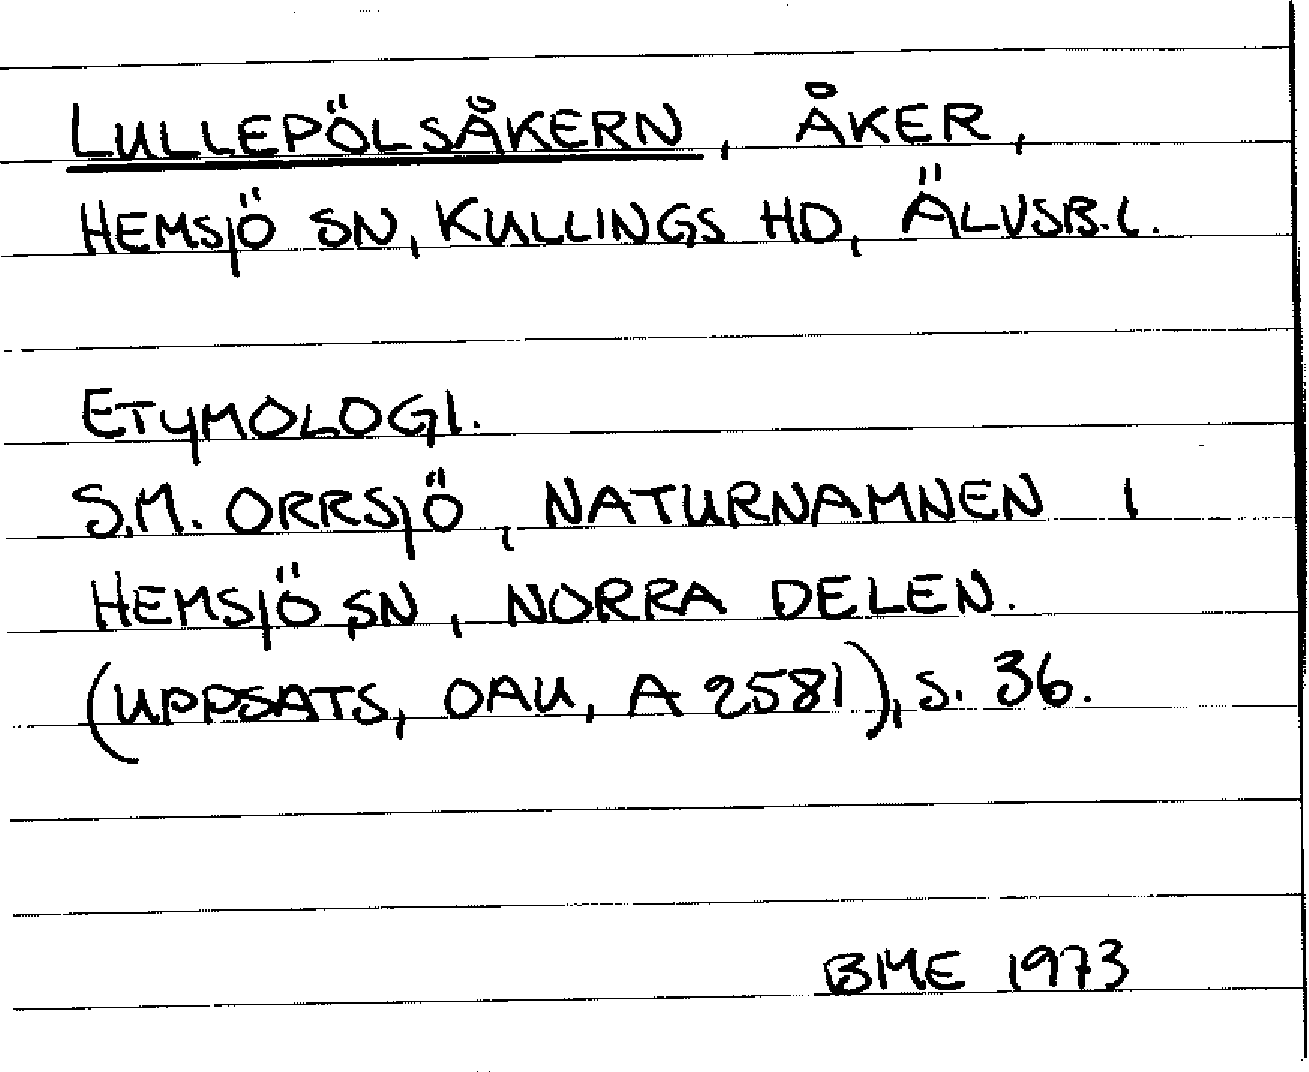 LULLEPÖLSÅKERN, ÅKER,
HEMSJÖ SN, KULLINGS HD, ÄLVSB.L.
ETYMOLOGI.
S.M. ORRSJÖ, NATURNAMNEN I
HEMSJÖ SN, NORRA DELEN.
(UPPSATS, OAU, A 2581), S. 36.
BME 1973